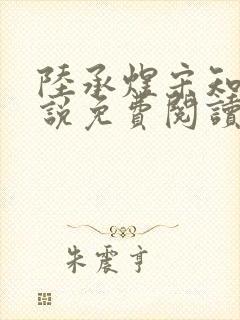 陸承煋宋知
說免費閱讀
朱震亨